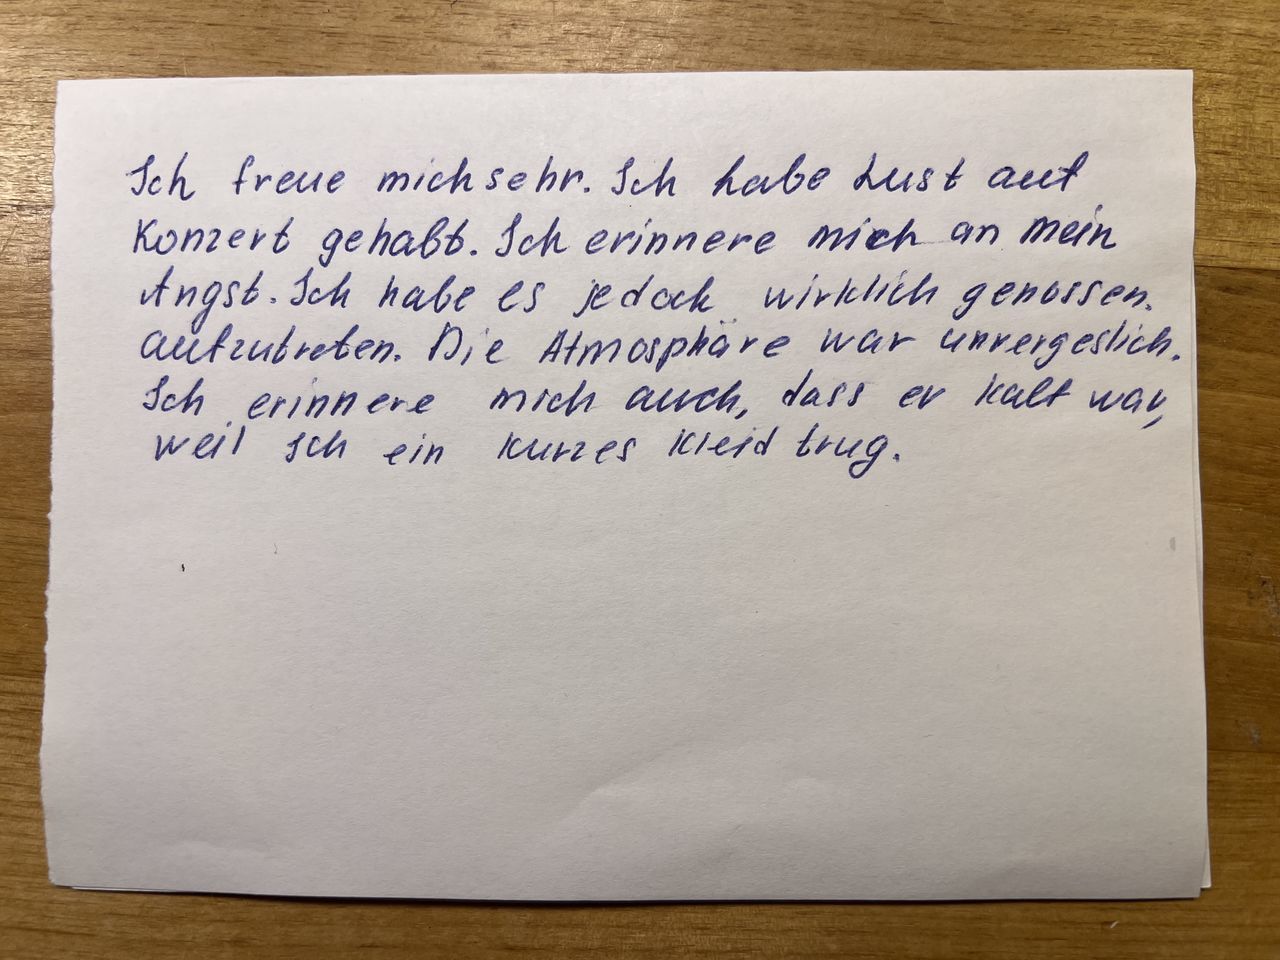 Ich freue mich sehr. Ich habe Lust auf
Konzert gehabt. Ich erinnere mich an mein
Angst. Ich habe es jedoch wirklich genossen.
aufzutreten. Die Atmosphäre war unvergeslich.
Ich erinnere mich auch, dass er kalt war,
weil ich ein kurzes Kleid trug.